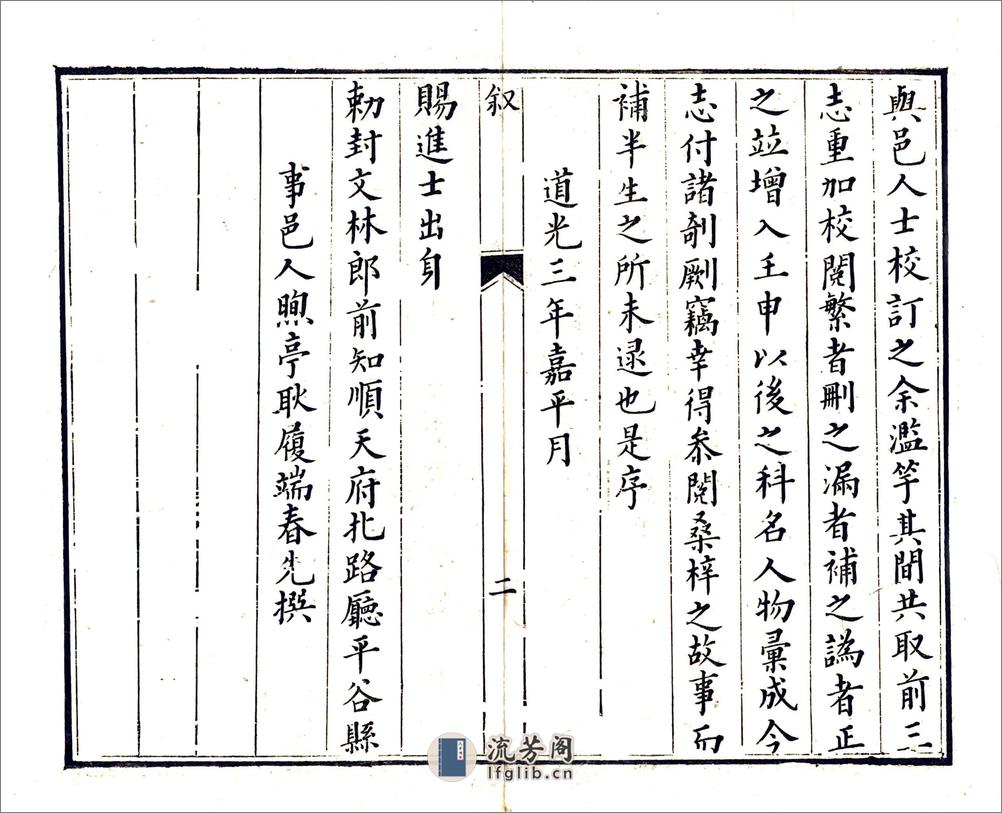 與邑人士校訂之余濫竽其間共取前三
志重加校閱繁者刪之漏者補之譌者正
之竝增入壬申以後之科名人物彙成今
志付諸剞劂竊幸得叅閱桑梓之故事而
補半生之所未逮也是序
道光三年嘉平月
叙
二
賜進士出身
勅封文林郎前知順天府北路廳平谷縣
事邑人煦亭耿履端春先撰
流芳阁
lfglib.cn